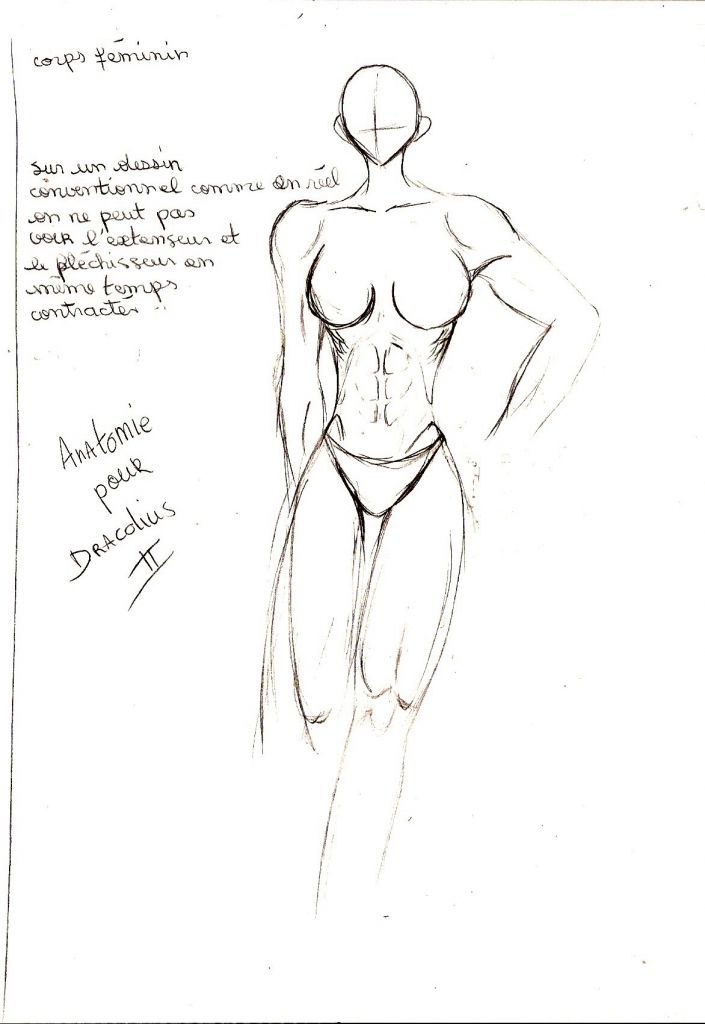 corps féminin
sur un dessin
conventionnel comme en réel
on ne peut pas
voir l'extenseur et
le fléchisseur en
même temps
contracter
Anatomie
pour
Dracolius
II